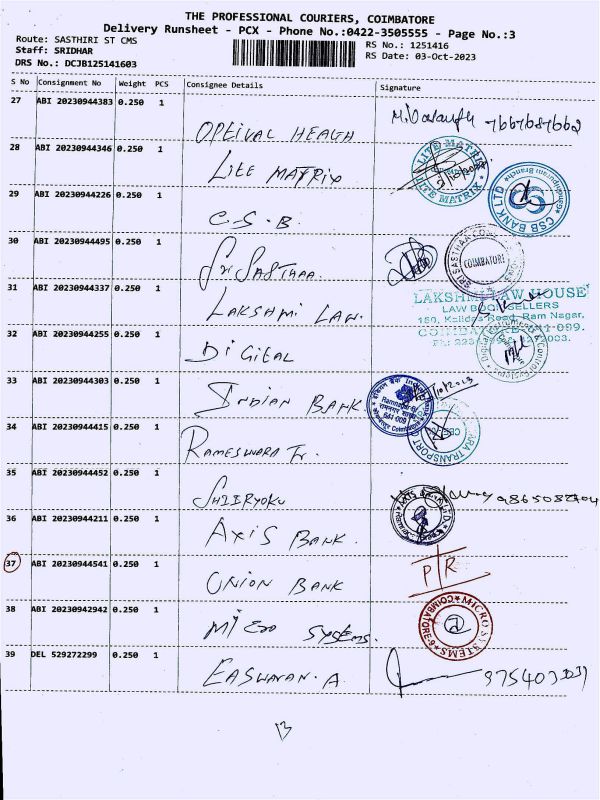 THE PROFESSIONAL COURIERS, COIMBATORE
Delivery Runsheet - PCX - Phone No.:0422-3505555 - Page No.:3
Route: SASTHIRI ST CMS
Staff: SRIDHAR
DRS No.: DCJB125141603
RS No.: 1251416
RS Date: 03-Oct-2023
S No Consignment No Weight PCS Consignee Details Signature
27 ABI 20230944383 0.250 1 OPTIVAL HEALTH
28 ABI 20230944346 0.250 1 LITE MATRIX LITE MATRIX LITE MATRIX
29 ABI 20230944226 0.250 1 C.S.B. CSB BANK LTD
30 ABI 20230944495 0.250 1 Sri SASTHAA COIMBATORE
31 ABI 20230944337 0.250 1 LAKSHMI LAW. LAKSHMI LAW HOUSE
LAW BOOK SELLERS
Ram Nagar,
32 ABI 20230944255 0.250 1 DiGital
33 ABI 20230944303 0.250 1 INDIAN BANK
641 009
34 ABI 20230944415 0.250 1 RAMESWARA Tr.
35 ABI 20230944452 0.250 1
36 ABI 20230944211 0.250 1 AXIS BANK.
37 ABI 20230944541 0.250 1 UNION BANK P R
38 ABI 20230942942 0.250 1 MICRO SYSTEMS. MICRO SYSTEMS
39 DEL 529272299 0.250 1 EASWARAN.A
13